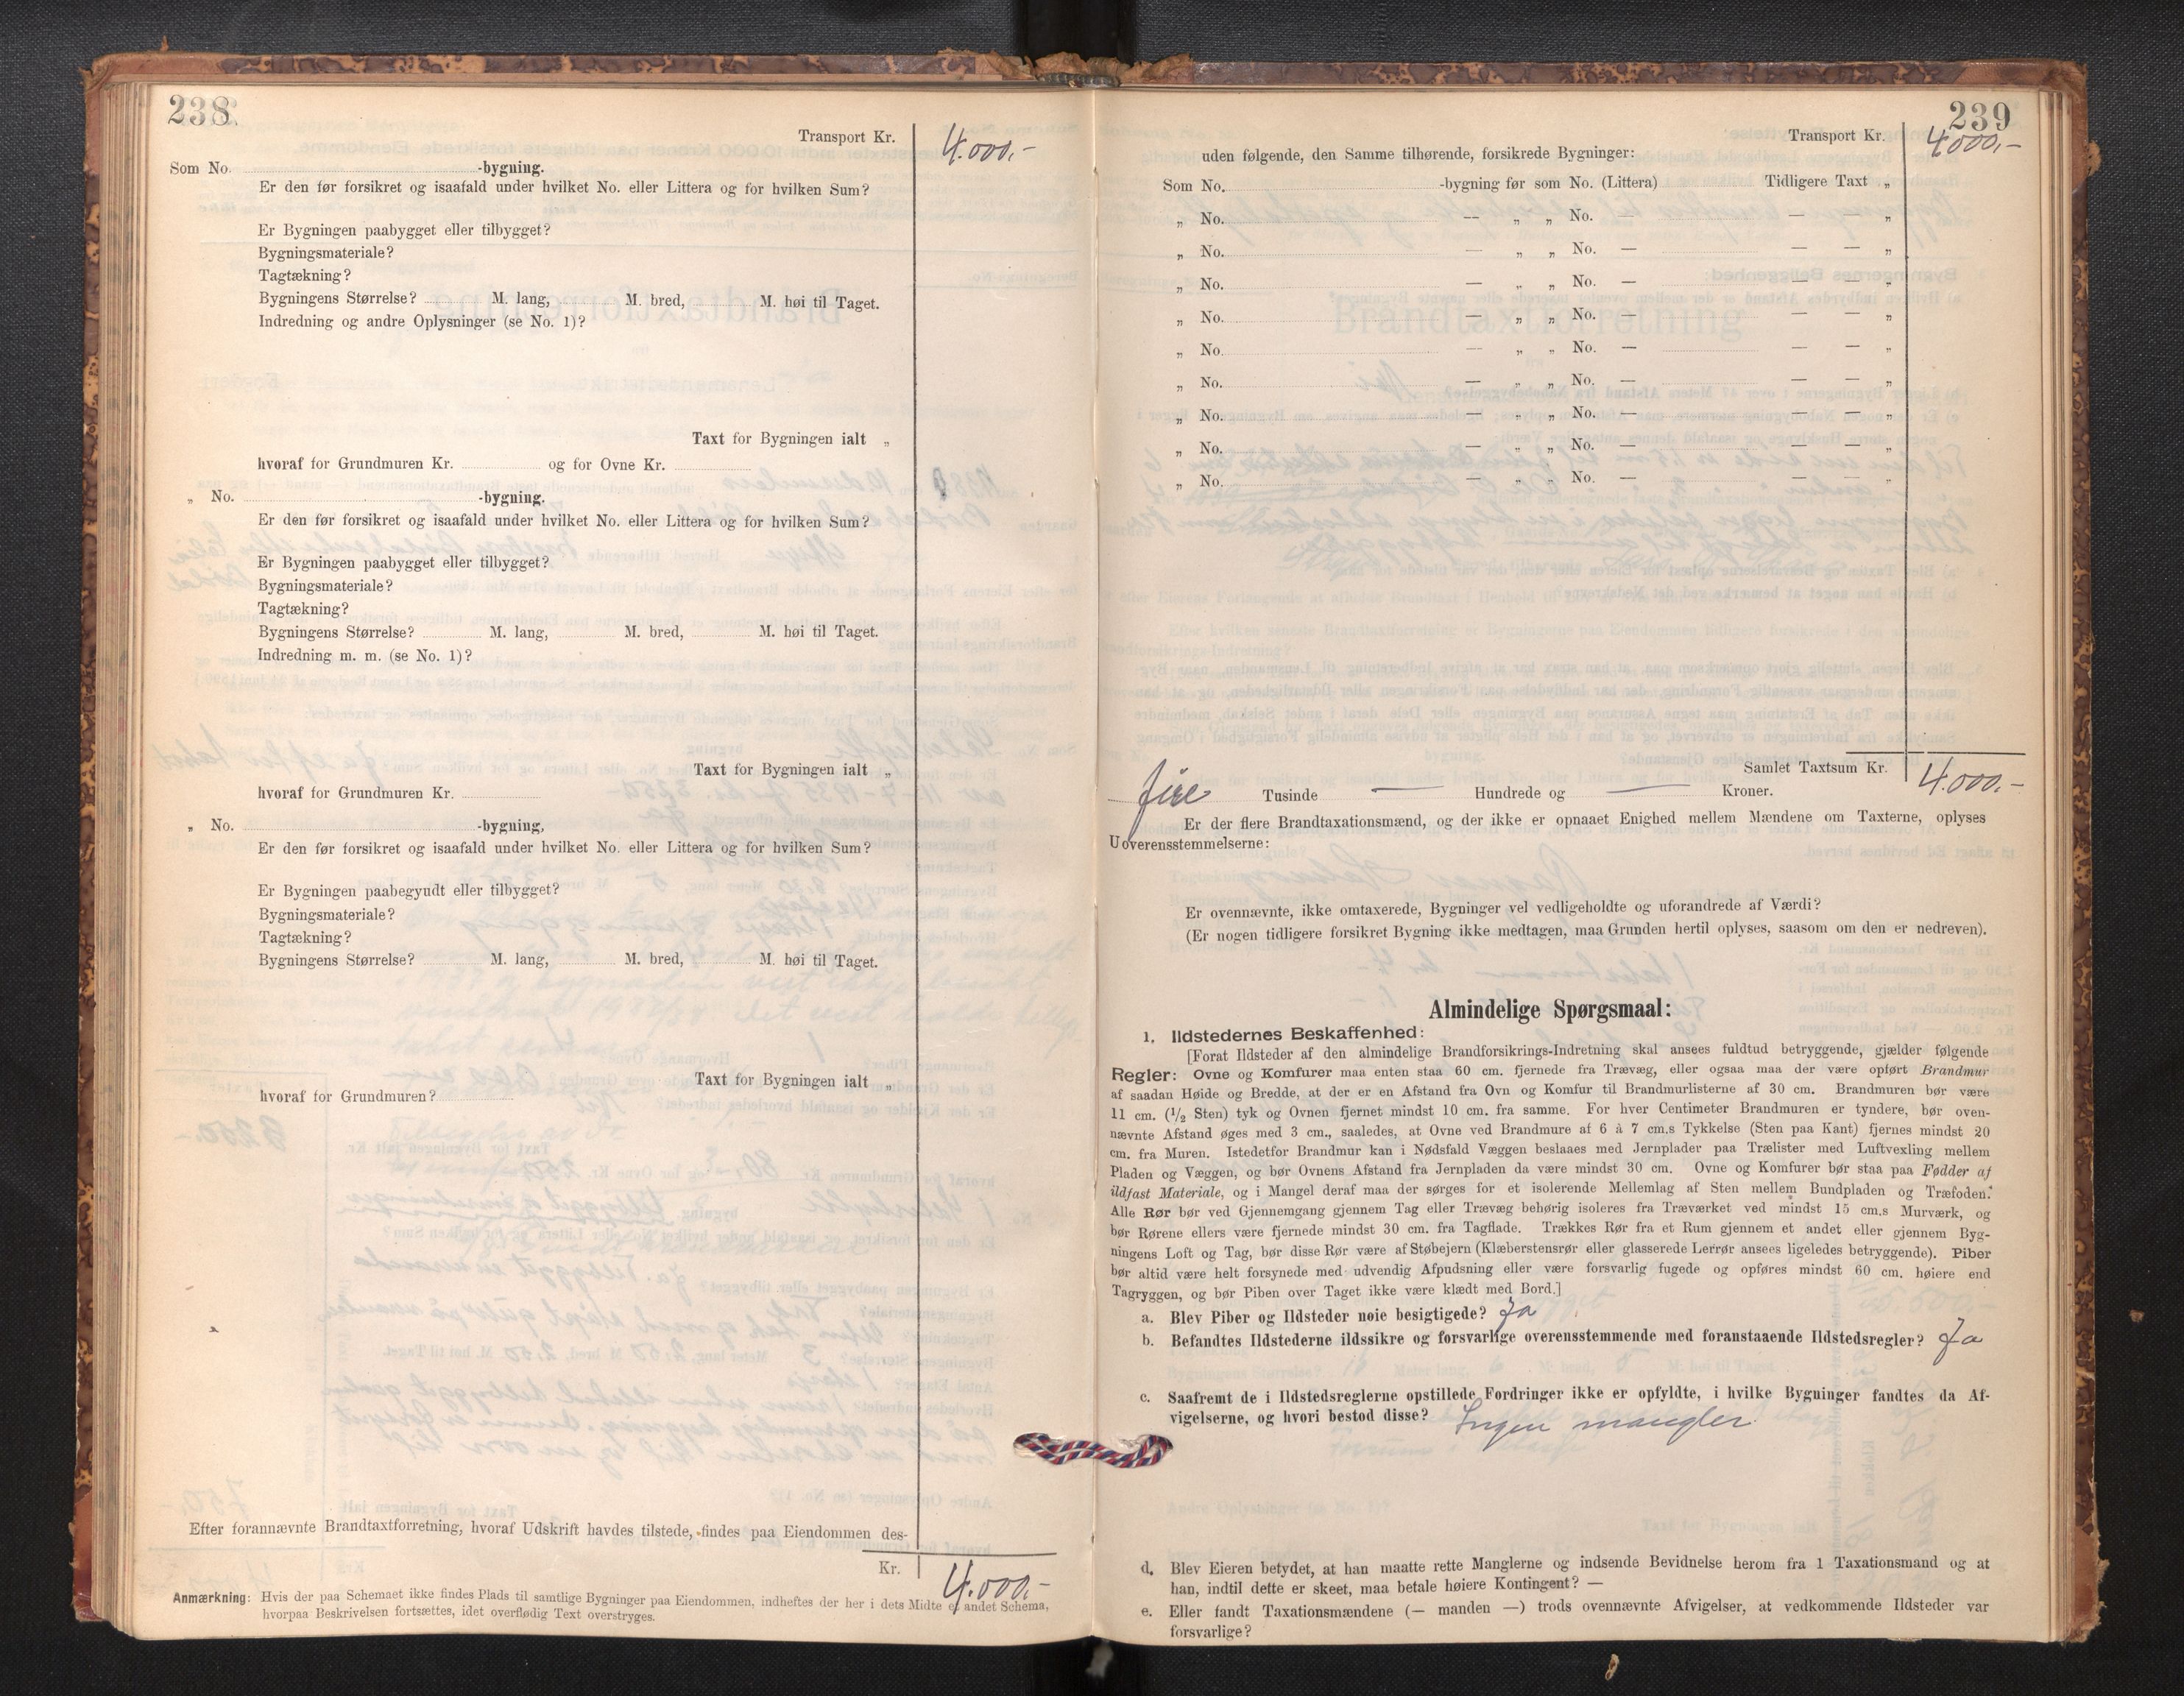 238.
Transport Kr. 4.000,-
Som No. -bygning.
Er den før forsikret og isaafald under hvilket No. eller Littera og for hvilken Sum?
Er Bygningen paabygget eller tilbygget?
Bygningsmateriale?
Tagtækning?
Bygningens Størrelse? M. lang, M. bred, M. høi til Taget.
Indredning og andre Oplysninger (se No. 1)?
Taxt for Bygningen ialt „
hvoraf for Grundmuren Kr. og for Ovne Kr.
„ No. -bygning.
Er den før forsikret og isaafald under hvilket No. eller Littera og for hvilken Sum?
Er Bygningen paabygget eller tilbygget?
Bygningsmateriale?
Tagtækning?
Bygningens Størrelse? M. lang, M. bred, M. høi til Taget.
Indredning m. m. (se No. 1)?
Taxt for Bygningen ialt „
hvoraf for Grundmuren Kr.
„ No. -bygning,
Er den før forsikret og isaafald under hvilket No. eller Littera og for hvilken Sum?
Er Bygningen paabegyudt eller tilbygget?
Bygningsmateriale?
Tagtækning?
Bygningens Størrelse? M. lang, M. bred, M. høi til Taget.
Taxt for Bygningen ialt „
hvoraf for Grundmuren?
Efter forannævnte Brandtaxtforretning, hvoraf Udskrift havdes tilstede, findes paa Eiendommen des-
Kr. 4.000,-
Anmærkning: Hvis der paa Schemaet ikke findes Plads til samtlige Bygninger paa Eiendommen, indheftes der her i dets Midte et andet Schema,
hvorpaa Beskrivelsen fortsættes, idet overflødig Text overstryges.
239
Transport Kr. 4000,-
uden følgende, den Samme tilhørende, forsikrede Bygninger:
Som No. -bygning før som No. (Littera) Tidligere Taxt „
„ No. — „ „ No. — — — „
„ No. — „ „ No. — — — „
„ No. — „ „ No. — — — „
„ No. — „ „ No. — — — „
„ No. — „ „ No. — — — „
„ No. — „ „ No. — — — „
„ No. — „ „ No. — — — „
„ No. — „ „ No. — — — „
„ No. — „ „ No. — — — „
Samlet Taxtsum Kr. 4.000.-
fire Tusinde — Hundrede og — Kroner.
Er der flere Brandtaxationsmænd, og der ikke er opnaaet Enighed mellem Mændene om Taxterne, oplyses
Uoverensstemmelserne:
Er ovennævnte, ikke omtaxerede, Bygninger vel vedligeholdte og uforandrede af Værdi?
(Er nogen tidligere forsikret Bygning ikke medtagen, maa Grunden hertil oplyses, saasom om den er nedreven).
Almindelige Spørgsmaal:
1. Ildstedernes Beskaffenhed:
[Forat Ildsteder af den almindelige Brandforsikrings-Indretning skal ansees fuldtud betryggende, gjælder følgende
Regler: Ovne og Komfurer maa enten staa 60 cm. fjernede fra Trævæg, eller ogsaa maa der være opført Brandmur
af saadan Høide og Bredde, at der er en Afstand fra Ovn og Komfur til Brandmurlisterne af 30 cm. Brandmuren bør være
11 cm. (1/2 Sten) tyk og Ovnen fjernet mindst 10 cm. fra samme. For hver Centimeter Brandmuren er tyndere, bør oven-
nævnte Afstand øges med 3 cm., saaledes, at Ovne ved Brandmure af 6 à 7 cm.s Tykkelse (Sten paa Kant) fjernes mindst 20
cm. fra Muren. Istedetfor Brandmur kan i Nødsfald Væggen beslaaes med Jernplader paa Trælister med Luftvexling mellem
Pladen og Væggen, og bør Ovnens Afstand fra Jernpladen da være mindst 30 cm. Ovne og Komfurer bør staa paa Fødder af
ildfast Materiale, og i Mangel deraf maa der sørges for et isolerende Mellemlag af Sten mellem Bundpladen og Træfoden.
Alle Rør bør ved Gjennemgang gjennem Tag eller Trævæg behørig isoleres fra Træværket ved mindst 15 cm.s Murværk, og
bør Rørene ellers være fjernede mindst 30 cm. fra Tagflade. Trækkes Rør fra et Rum gjennem et andet eller gjennem Byg-
ningens Loft og Tag, bør disse Rør være af Støbejern (Klæberstensrør eller glasserede Lerrør ansees ligeledes betryggende). Piber
bør altid være helt forsynede med udvendig Afpudsning eller være forsvarlig fugede og opføres mindst 60 cm. høiere end
Tagryggen, og bør Piben over Taget ikke være klædt med Bord.]
a. Blev Piber og Ildsteder nøie besigtigede? Ja
b. Befandtes Ildstederne ildssikre og forsvarlige overensstemmende med foranstaaende Ildstedsregler? Ja
c. Saafremt de i Ildstedsreglerne opstillede Fordringer ikke er opfyldte, i hvilke Bygninger fandtes da Af-
vigelserne, og hvori bestod disse? Ingen mangler
d. Blev Eieren betydet, at han maatte rette Manglerne og indsende Bevidnelse herom fra 1 Taxationsmand og at
han, indtil dette er skeet, maa betale høiere Kontingent? —
e. Eller fandt Taxationsmændene (— manden —) trods ovennævnte Afvigelser, at vedkommende Ildsteder var
forsvarlige?